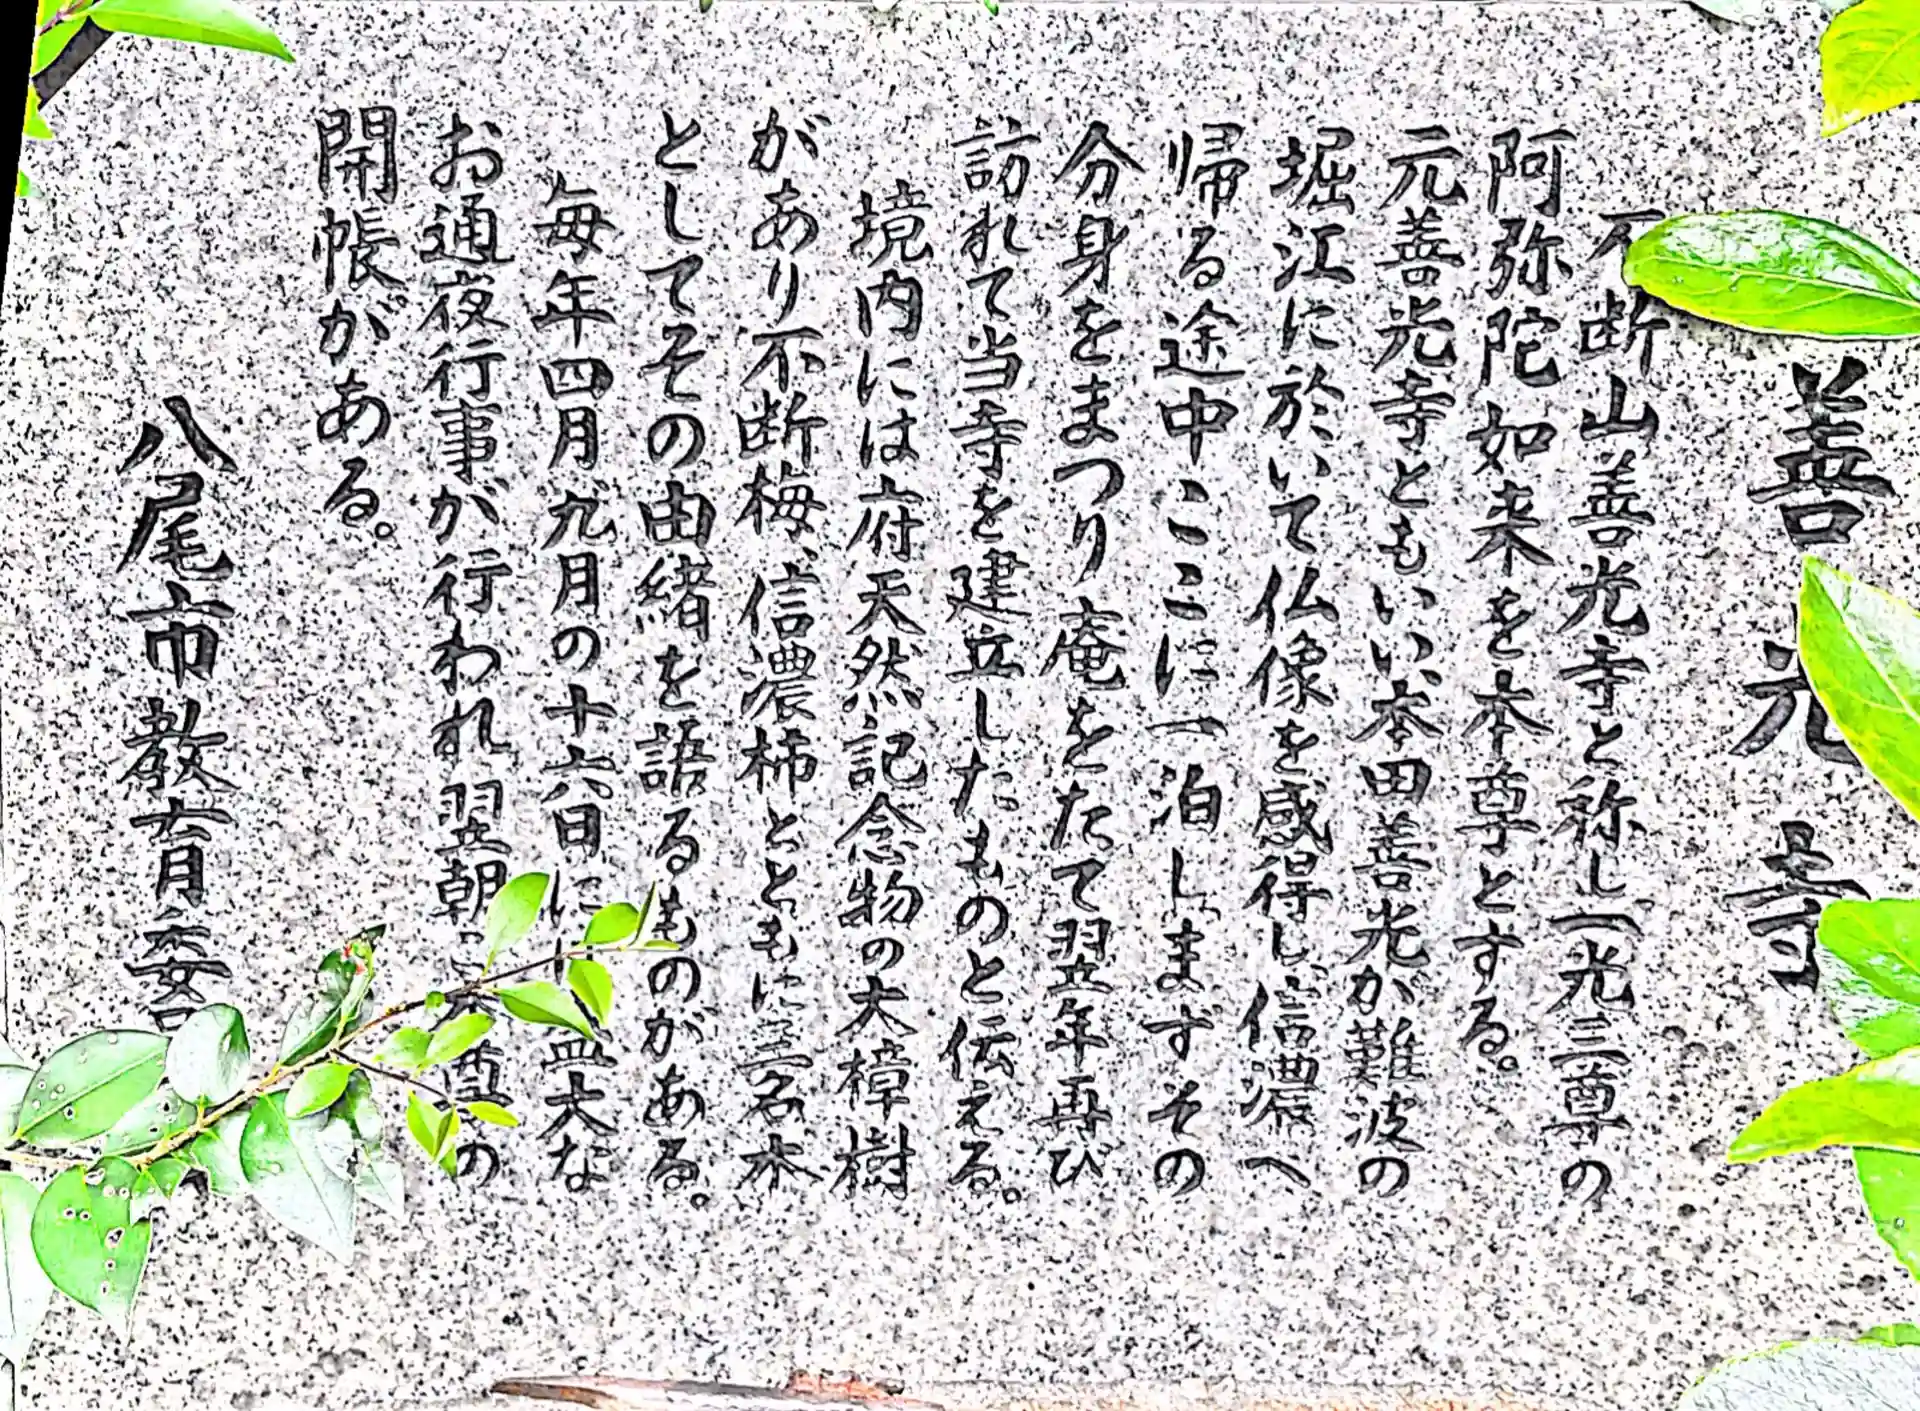 善光寺
不断山善光寺と称し一光三尊の
阿弥陀如来を本尊とする。
元善光寺ともいい、本田善光が難波の
堀江に於いて仏像を感得し、信濃へ
帰る途中ここに一泊しますその
分身をまつり庵をたて翌年再び
訪れて当寺を建立したものと伝える。
境内には府天然記念物の大樟樹
があり不断梅、信濃柿とともに三名木
としてその由緒を語るものがある。
毎年四月九月の十六日に 盛大な
お通夜行事が行われ翌朝 尊の
開帳がある。
八尾市教育委